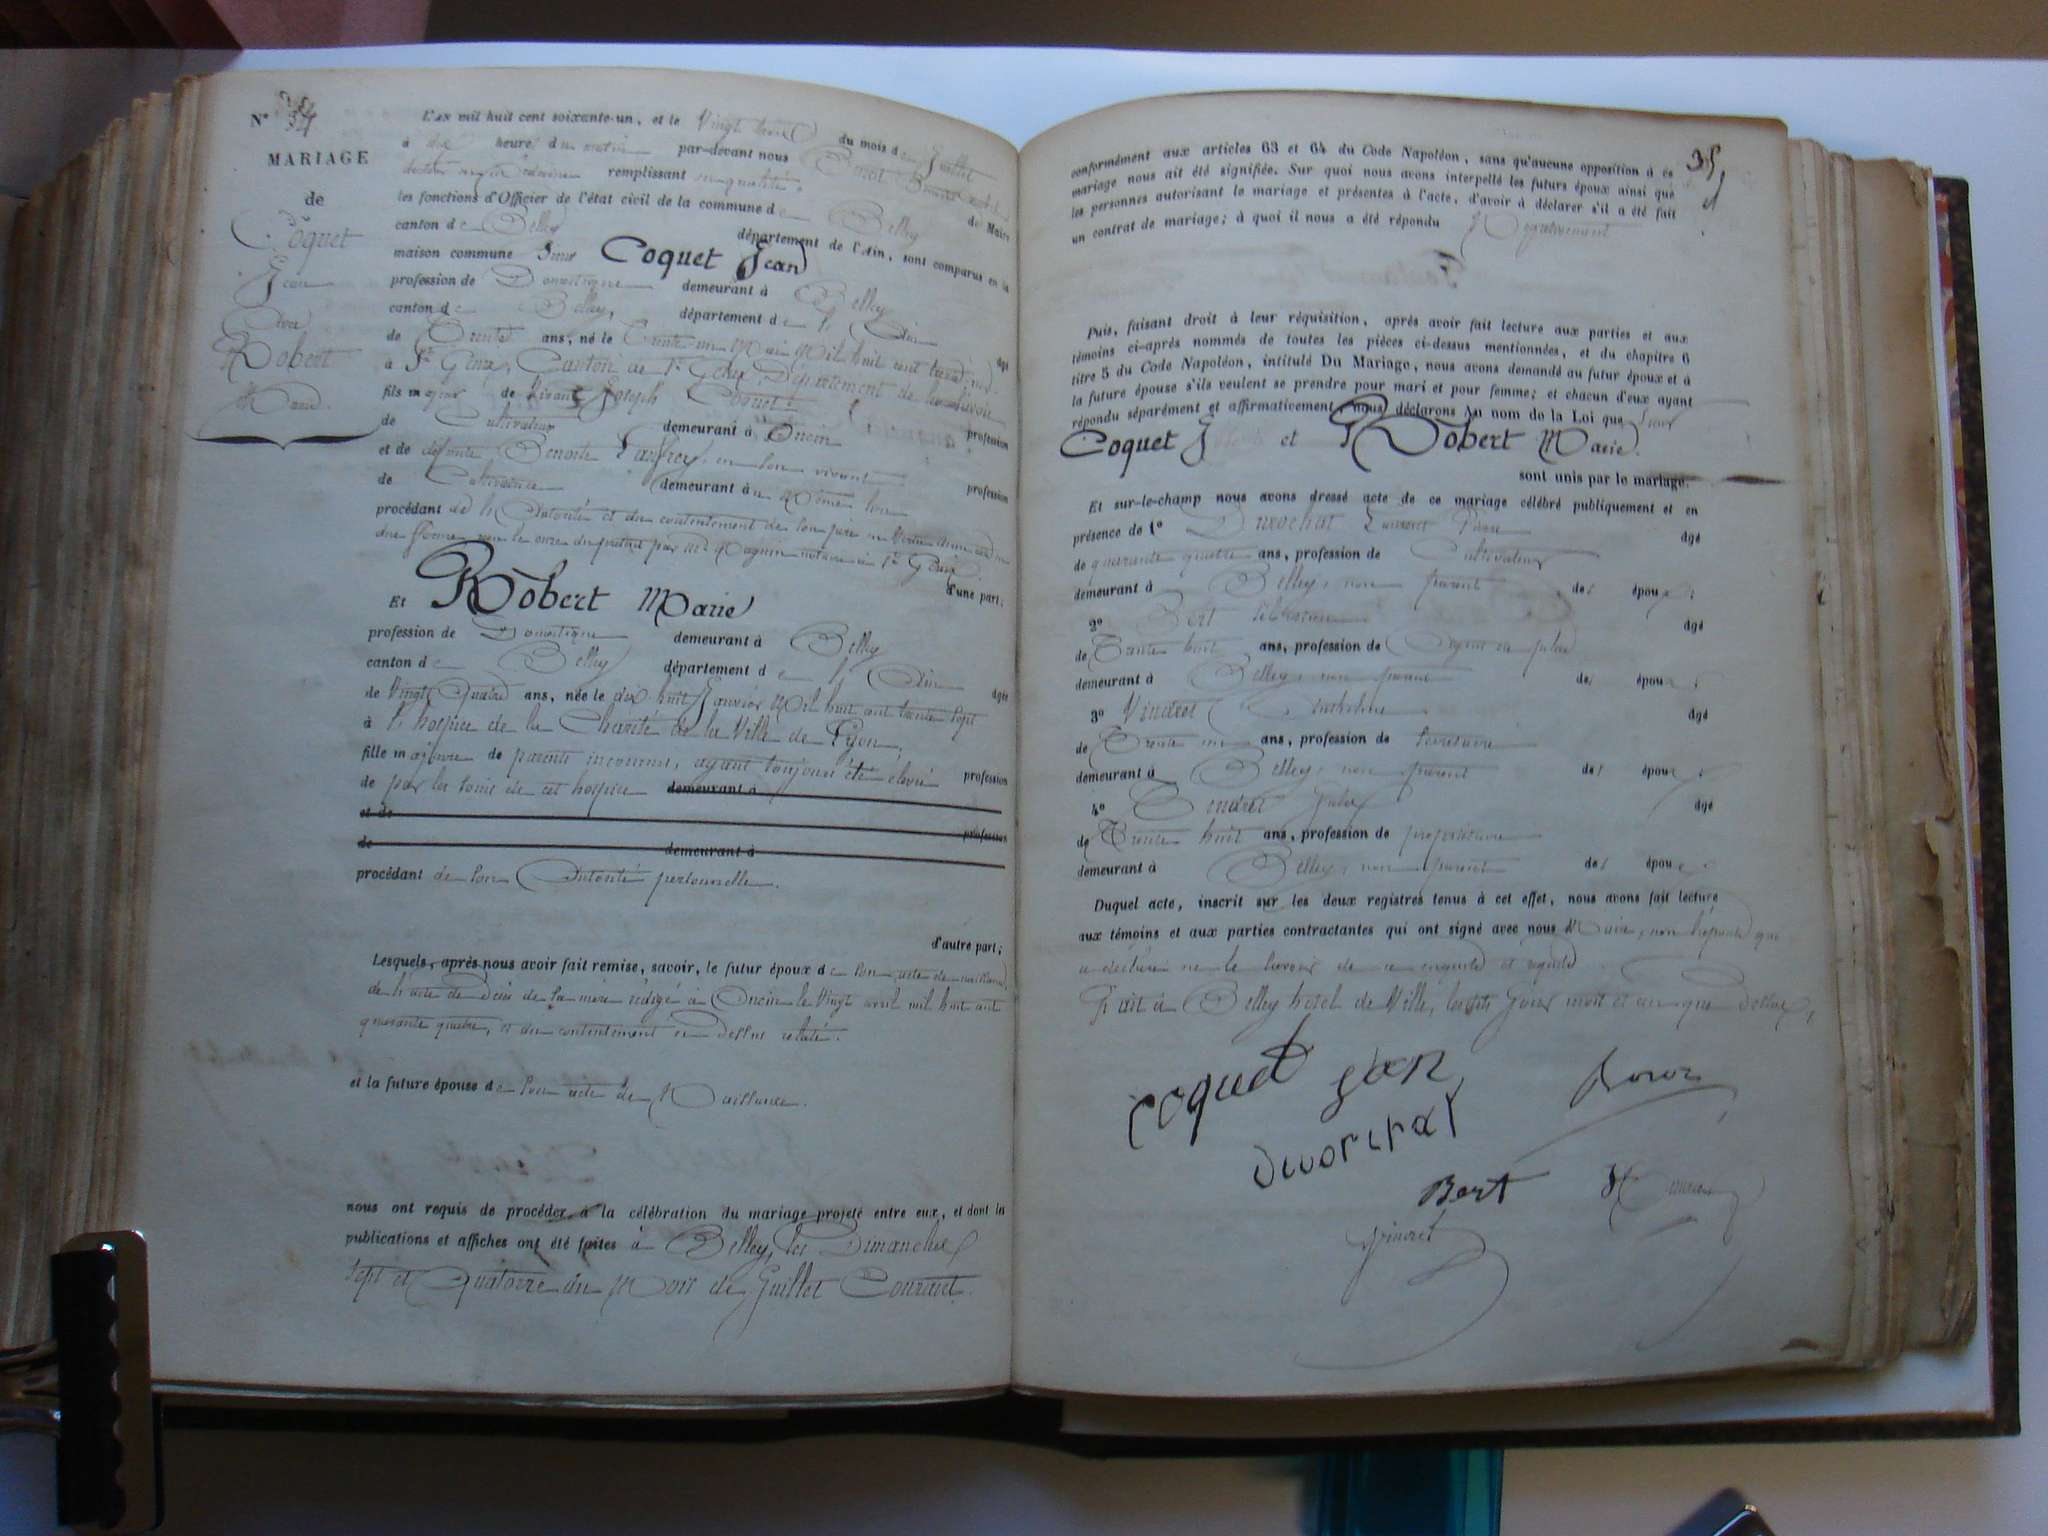 N° 34
MARIAGE
de
Coquet
Jean
Avec
Robert
Marie.
L'AN mil huit cent soixante-un, et le Vingt trois du mois de Juillet
à dix heures du matin par-devant nous
remplissant
les fonctions d'Officier de l'état civil de la commune de Belley
canton de Belley département de l'Ain, sont comparus en la
maison commune Sieur Coquet Jean
profession de Domestique demeurant à Belley
canton de Belley, département de l'Ain âgé
de Trente ans, né le Trente un Mai Mil huit cent trente un
à St Genix, Canton de St Genix, Département de la Savoie
fils majeur de Joseph Coquet profession
de Cultivateur demeurant à Oncin
et de défunte Benoite en son vivant profession
de Cultivatrice demeurant au Même lieu
procédant de l'Autorité et du consentement de son père
notaire à St Genix. d'une part;
Et Robert Marie
profession de Domestique demeurant à Belley
canton de Belley département de l'Ain âgée
de Vingt Quatre ans, née le dix huit Janvier Mil huit cent trente sept
à l'hospice de la Charité de la Ville de Lyon,
fille majeure de parents inconnus, ayant toujours été élevée profession
de par les soins de cet hospice demeurant à
et de profession
de demeurant à
procédant de son Autorité personnelle.
d'autre part;
Lesquels, après nous avoir fait remise, savoir, le futur époux de son acte de naissance,
de l'acte de Décès de sa mère rédigé à Oncin le Vingt avril mil huit cent
quarante quatre, et du consentement ci Dessus relaté.
et la future épouse de son acte de Naissance.
nous ont requis de procéder à la célébration du mariage projeté entre eux, et dont les
publications et affiches ont été faites à Belley, les Dimanches
sept et Quatorze du Mois de Juillet Courant.
35
conformément aux articles 63 et 64 du Code Napoléon, sans qu'aucune opposition à ce
mariage nous ait été signifiée. Sur quoi nous avons interpellé les futurs époux ainsi que
les personnes autorisant le mariage et présentes à l'acte, d'avoir à déclarer s'il a été fait
un contrat de mariage; à quoi il nous a été répondu Négativement
Puis, faisant droit à leur réquisition, après avoir fait lecture aux parties et aux
témoins ci-après nommés de toutes les pièces ci-dessus mentionnées, et du chapitre 6
titre 5 du Code Napoléon, intitulé Du Mariage, nous avons demandé au futur époux et à
la future épouse s'ils veulent se prendre pour mari et pour femme; et chacun d'eux ayant
répondu séparément et affirmativement, nous déclarons Au nom de la Loi que Sieur
Coquet Jean et Robert Marie.
sont unis par le mariage.
Et sur-le-champ nous avons dressé acte de ce mariage célébré publiquement et en
présence de 1° Pierre âgé
de quarante quatre ans, profession de Cultivateur
demeurant à Belley, non parent des époux;
2° Bert âgé
de Trente huit ans, profession de Agent de police
demeurant à Belley, non parent des époux;
3° Vindret Anthelme âgé
de Trente un ans, profession de secrétaire
demeurant à Belley, non parent des époux;
4° Jules âgé
de Trente huit ans, profession de propriétaire
demeurant à Belley, non parent des époux.
Duquel acte, inscrit sur les deux registres tenus à cet effet, nous avons fait lecture
aux témoins et aux parties contractantes qui ont signé avec nous Maire, non l'épouse qui
a déclaré ne le savoir de ce enquise et requise.
Fait à Belley hôtel de Ville, lesdits Jour mois et an que Dessus,
coquet jean
Bert